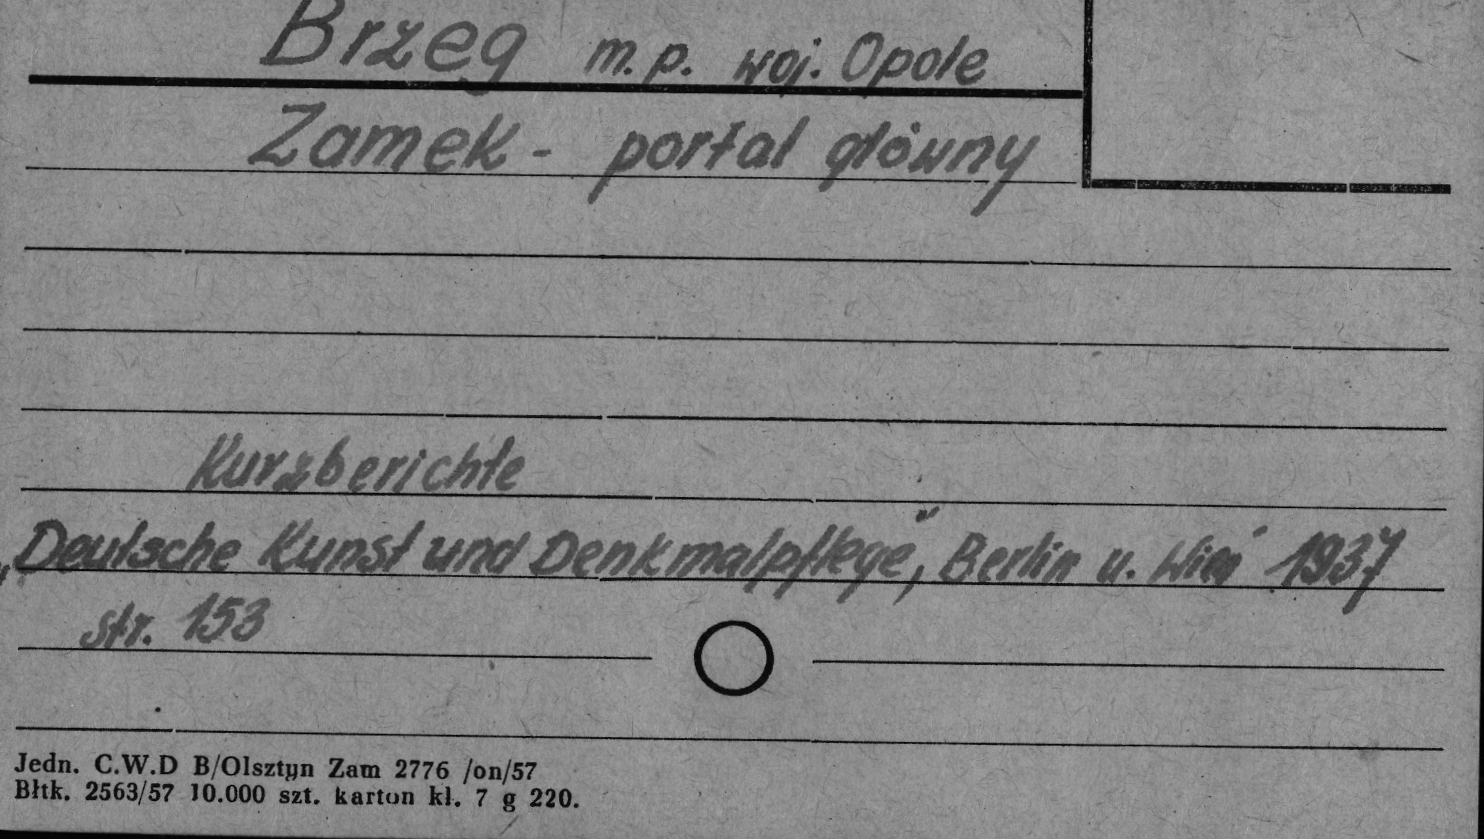 Brzeg m.p. woj. Opole
Zamek - portal główny
Kurzberichte
„Deutsche Kunst und Denkmalpflege", Berlin u. Wien 1937
str. 153
Jedn. C.W.D B/Olsztyn Zam 2776 /on/57
Błtk. 2563/57 10.000 szt. karton kl. 7 g 220.